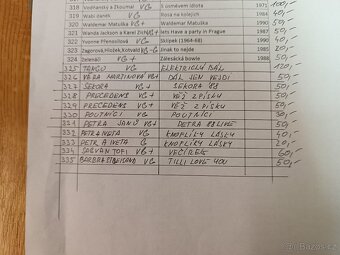 318 Vodňanský a Skoumal VG S úsměvem idiota 1971
319 Wabi Daněk VG Rosa na kolejích 1984
320 Waldemar Matuška VG + Waldemar Matuška 1990 50,-
321 Wanda Jackson a Karel Zich VG + Lets Have a party in Prague 1987 50,-
322 Yvonne Přenosilová VG Sklípek (1964-68) 1990 40,-
323 Zagorová, Hložek, Kotvald VG -G Jinak to nejde 1985 20,-
324 Zelenáči VG + Zálesácká bowle 1988 50,-
325 TANGO VG ELEKTRICKÝ BÁL 120,-
326 VĚRA MARTINOVÁ VG + DÁL JEN VEJDI 50,-
327 SEKORA VG + SEKORA 88 50,-
328 PRECEDENS VG + VĚŽ Z PÍSKU 50,-
329 PRECEDENS VG + VĚŽ Z PÍSKU 50,-
330 POUTNÍCI VG POUTNÍCI 50,-
331 PETRA JANŮ VG + PETRA 50,-
332 PETR A IVETA G KNOFLÍKY LÁSKY 20,-
333 PETR A IVETA VG KNOFLÍKY LÁSKY 40,-
334 VG + VEČÍREK 60,-
335 BARBRA STREISAND VG TILL I LOVE YOU 50,-